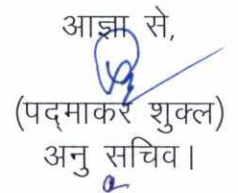 आज्ञा से,
(पद्माकर शुक्ल)
अनु सचिव।